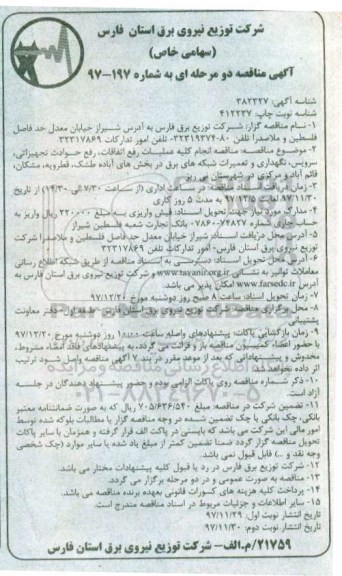 شرکت توزیع نیروی برق استان فارس
(سهامی خاص)
آگهی مناقصه دو مرحله ای به شماره ۱۹۷-۹۷
شناسه آگهی: ۳۸۲۳۲۷
شناسه نوبت چاپ: ۴۱۲۲۳۷
۱- نام مناقصه گزار: شرکت توزیع برق فارس به آدرس شیراز خیابان معدل حد فاصل
فلسطین و ملاصدرا تلفن ۸۰-۳۲۳۱۹۳۷۴، تلفن امور تدارکات ۳۲۳۱۷۸۶۹
۲- موضوع مناقصه: مناقصه انجام کلیه عملیات رفع اتفاقات، رفع حوادث تجهیزاتی،
سرویس، نگهداری و تعمیرات شبکه های برق در بخش های آباده طشک، قطرویه، مشکان،
قائم آباد و مرکزی در شهرستان نی ریز
۳- زمان دریافت اسناد مناقصه: در ساعت اداری (از ساعت ۷/۳۰ الی ۱۴/۳۰) از تاریخ
۹۷/۱۱/۳۰ لغایت ۹۷/۱۲/۵ به مدت ۵ روز کاری
۴- مدارک مورد نیاز جهت تحویل اسناد: فیش واریزی به مبلغ ۲۲۰۰۰۰ ریال واریز به
حساب جاری شماره ۰۷۸۶۰۰۷۴۸۲۷ بانک تجارت شعبه فلسطین شیراز
۵- آدرس محل دریافت اسناد: شیراز خیابان معدل حد فاصل فلسطین و ملاصدرا شرکت
توزیع نیروی برق استان فارس- امور تدارکات تلفن ۳۲۳۱۷۸۶۹
۶- آدرس محل تحویل اسناد: دسترسی به اسناد مناقصه از طریق شبکه اطلاع رسانی
معاملات توانیر به نشانی www.tavanir.org.ir و شرکت توزیع نیروی برق استان فارس به
آدرس www.farsedc.ir امکان پذیر می باشد.
۷- زمان تحویل اسناد: ساعت ۸ صبح روز دوشنبه مورخ ۹۷/۱۲/۲۰
۸- محل برگزاری مناقصه: شرکت توزیع نیروی برق استان فارس- طبقه اول- دفتر معاونت
۹- زمان بازگشایی پاکات: پیشنهادهای واصله ساعت روز دوشنبه مورخ ۹۷/۱۲/۲۰
با حضور اعضاء کمیسیون مناقصه باز و قرائت می گردد، به پیشنهادهای فاقد امضاء، مشروط،
مخدوش و پیشنهاداتی که بعد از موعد مقرر در بند ۷ آگهی مناقصه واصل شود ترتیب
اثر داده نخواهد شد.
۱۰- ذکر شماره مناقصه روی پاکات الزامی بوده و حضور پیشنهاد دهندگان در جلسه
آزاد است.
۱۱- تضمین شرکت در مناقصه: مبلغ ۷۰۵/۶۳۶/۵۴۰ ریال که به صورت ضمانتنامه معتبر
بانکی، چک بانکی یا چک تضمین شده در وجه مناقصه گزار یا مطالبات بلوکه شده توسط
امور مالی این شرکت می باشد که بایستی در پاکت الف قرار گرفته و همزمان با سایر پاکات
تحویل مناقصه گزار گردد ضمنا تضمین کمتر از مبلغ یاد شده یا سایر موارد (چک شخصی
وجه نقد و ...) قابل قبول نمی باشد.
۱۲- شرکت توزیع برق فارس در رد یا قبول کلیه پیشنهادات مختار می باشد.
۱۳- مناقصه به صورت عمومی و در دو مرحله برگزار می گردد.
۱۴- پرداخت کلیه هزینه های کسورات قانونی بعهده برنده مناقصه می باشد.
۱۵- سایر اطلاعات و جزئیات مربوط در اسناد مناقصه مندرج است.
تاریخ انتشار نوبت اول: ۹۷/۱۱/۲۹
تاریخ انتشار نوبت دوم: ۹۷/۱۱/۳۰
۲۱۷۵۹/م.الف- شرکت توزیع نیروی برق استان فارس